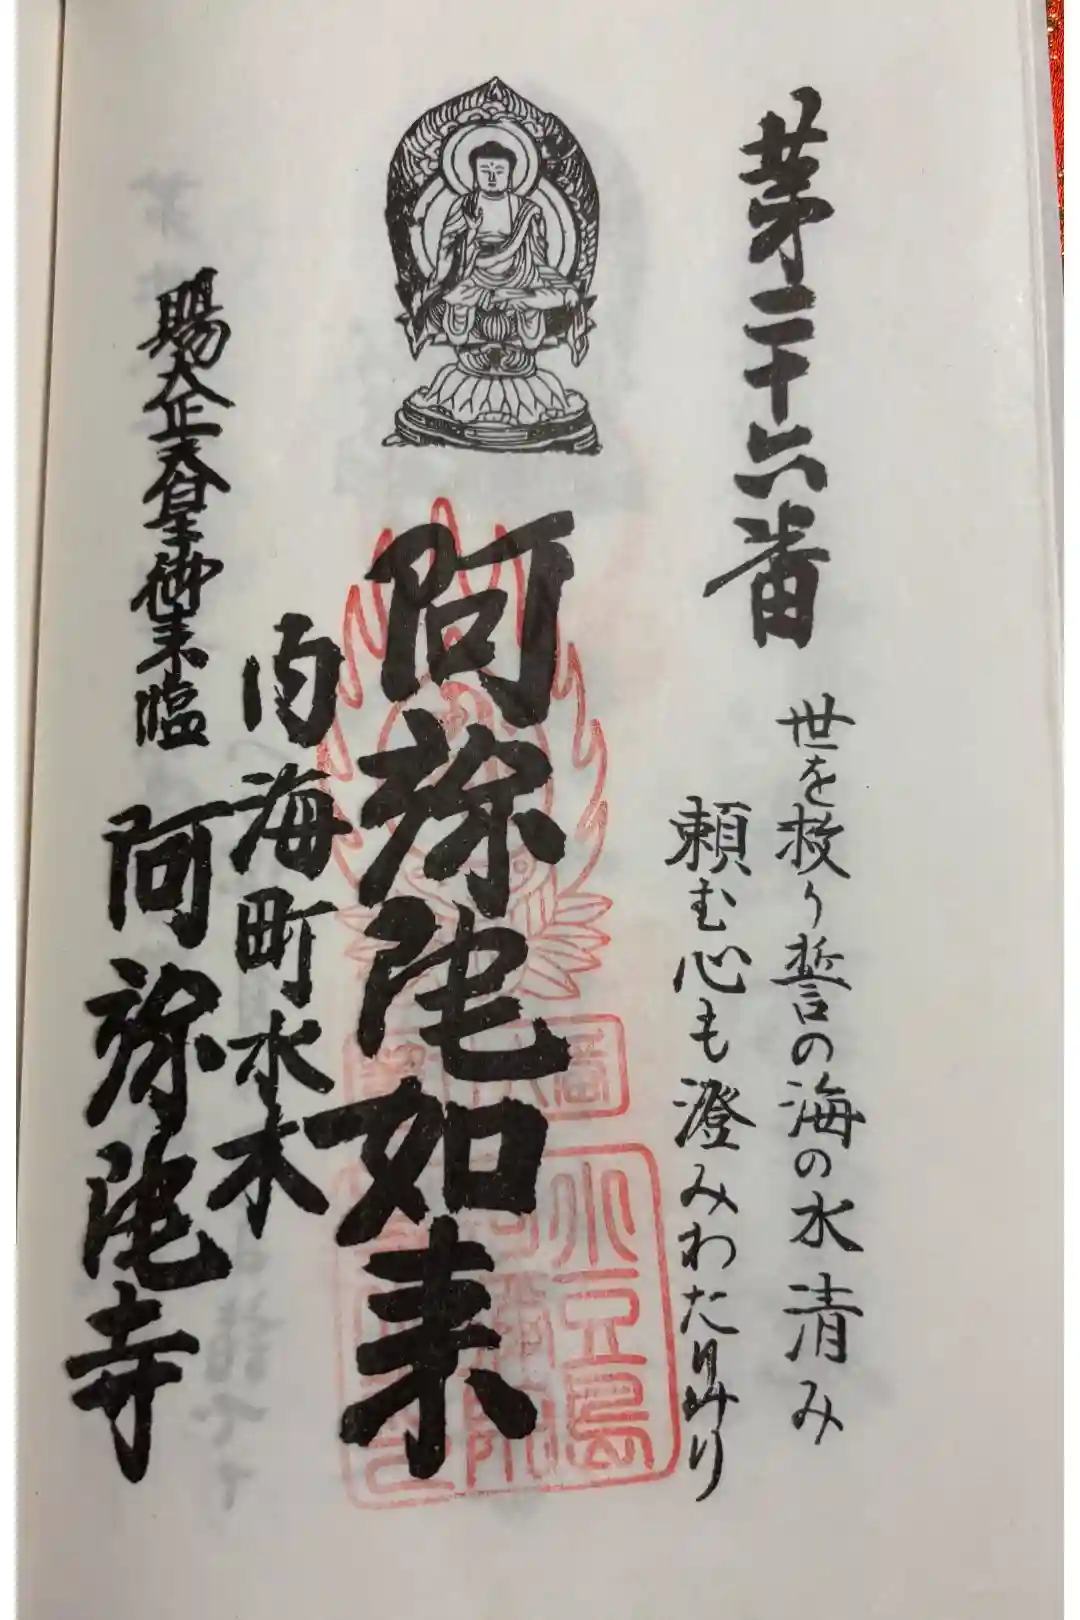 第二十六番
世を救う誓の海の水清み
頼む心も澄みわたりけり
阿弥陀如来
内海町水木
賜大正天皇御来臨
阿弥陀寺
小豆島